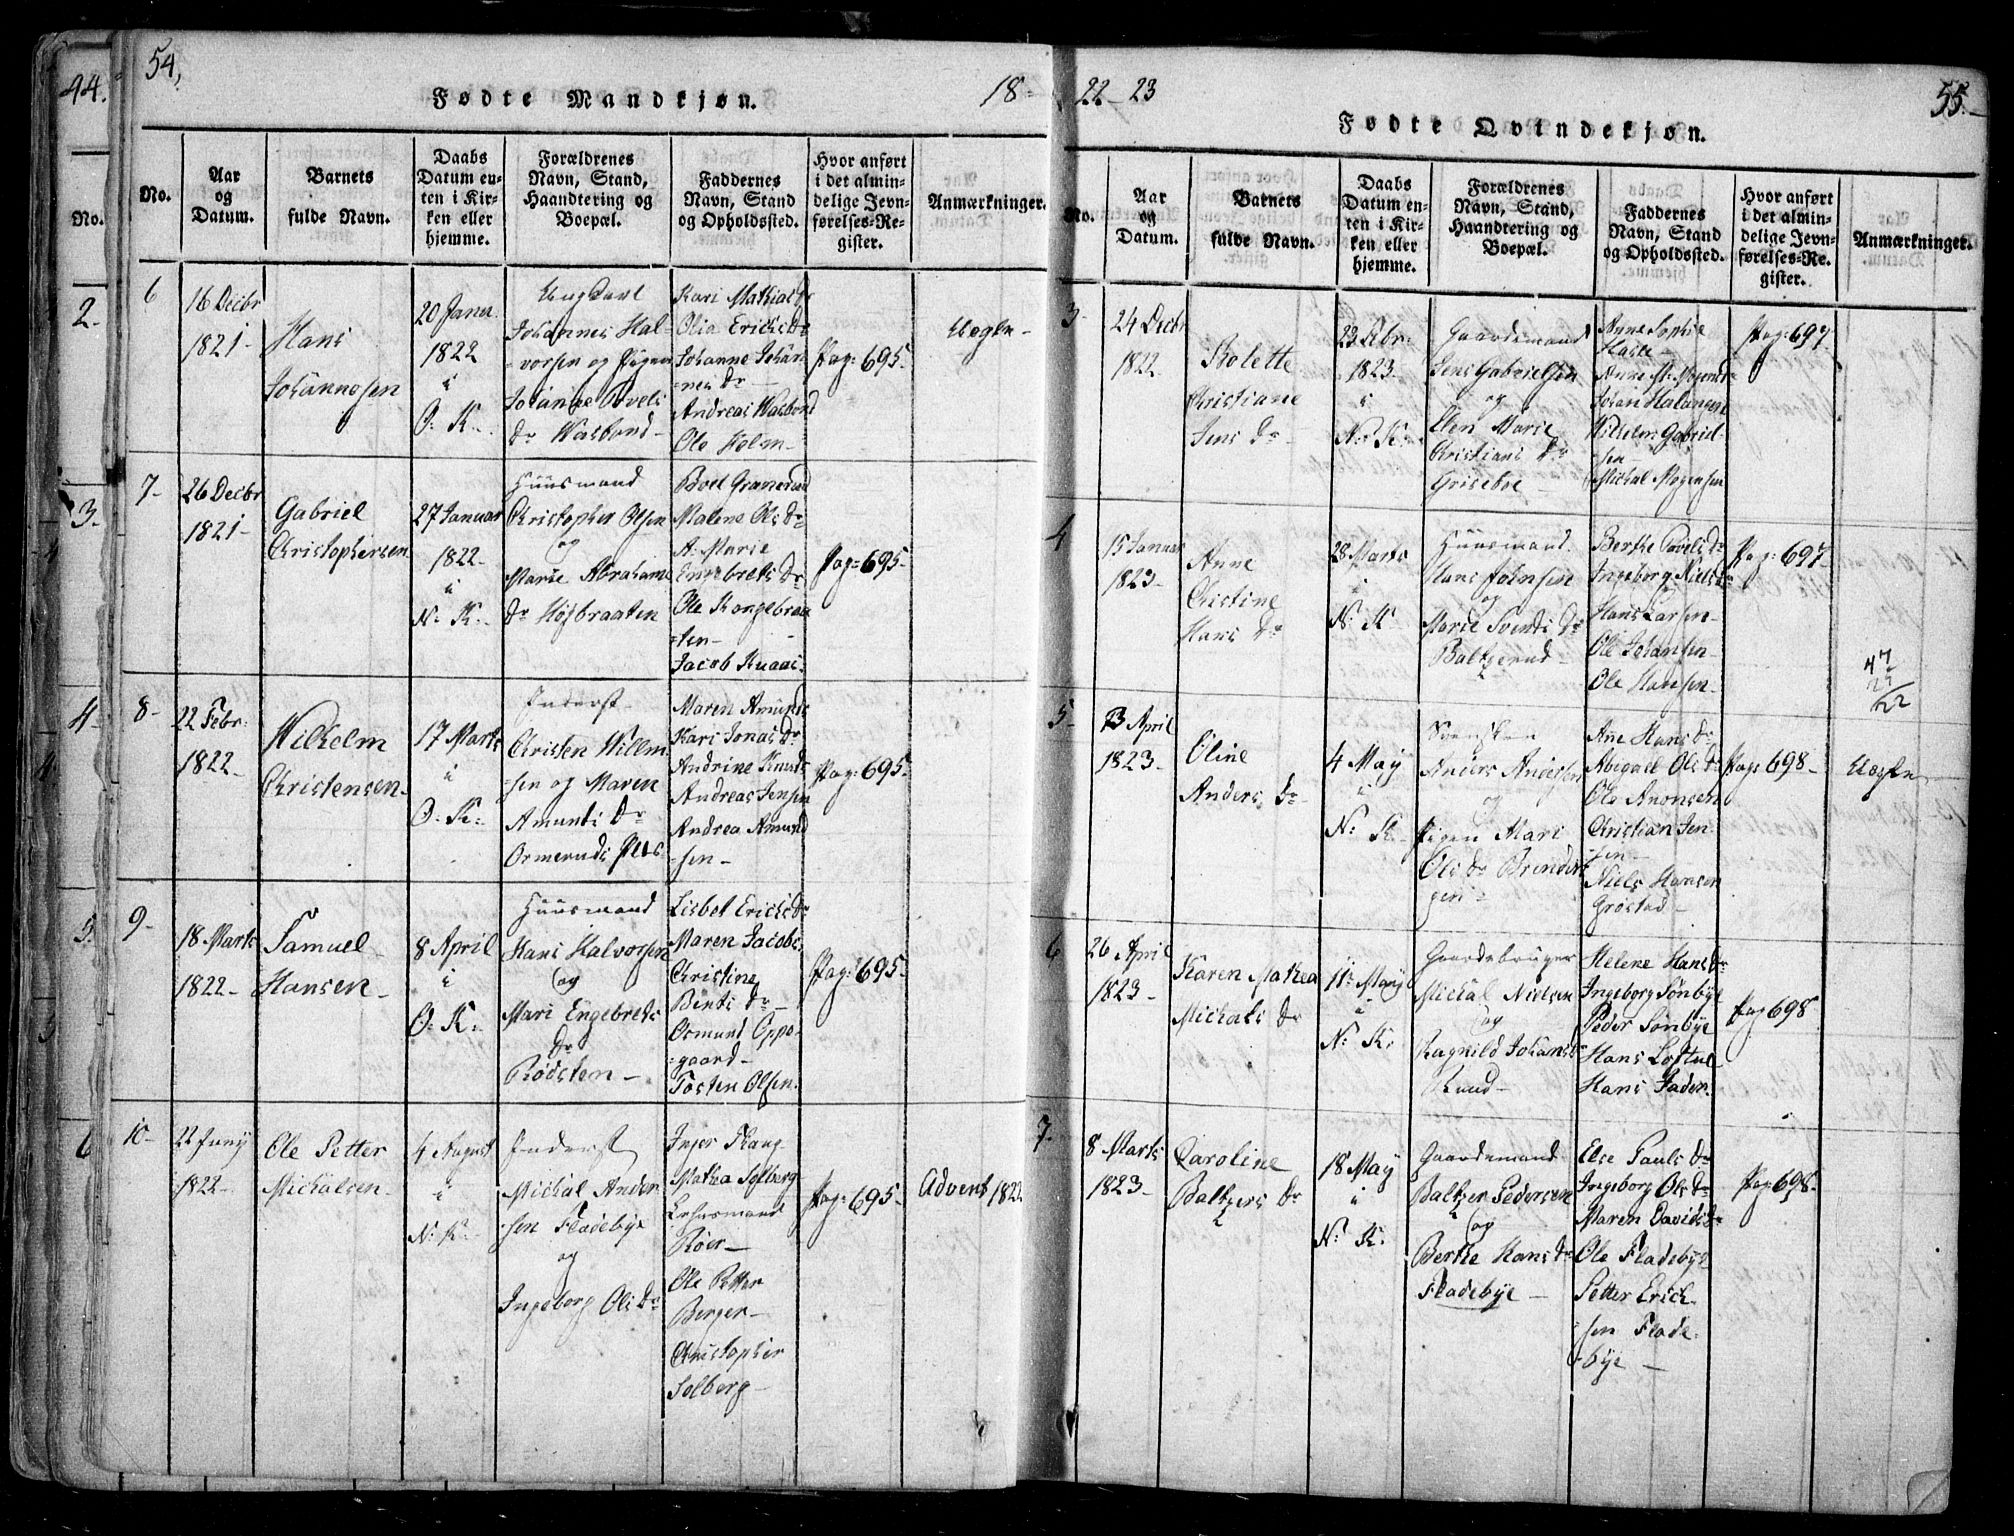 54,
Fødte Mandkjøn.
18
No.
Aar
og
Datum.
Barnets
fulde Navn.
Daabs
Datum en-
ten i Kir-
ken eller
hjemme.
Forældrenes
Navn, Stand,
Haandtering og
Boepæl.
Faddernes
Navn, Stand
og Opholdssted.
Hvor anført
i det almin-
delige Jevn-
førelses-Re-
gister.
Anmærkninger.
6
16 Decbr
1821-
Hans
Johannesen
20 Janu
1822
i
O. K.
Ungkarl
Johannes Hal-
vorsen og Pigen
Johanne Povels
Dr Wasbond-
Kari Mathias Dr
Olia Erichs Dr
Johanne Johan-
nes Dr
Andreas Wasbond
Ole Holm-
Pag: 695-
Uægte-
7-
26 Decbr
1821-
Gabriel
Christophersen
27 Januar
1822-
i
N. K.
Huusmand
Christopher Olsen
og
Marie Abrahams
Dr Høibraaten
Boel Granerud
Malene Ols Dr
A. Marie
Engebrets Dr
Ole Kongebraa-
ten-
Jacob Knaai:
Pag: 695-
8-
22 Febr.
1822-
Wilhelm
Christensen-
17 Marts
i
O. K:
Inderst
Christen Willm-
sen og Maren
Amunds Dr
Ormeruds Plds
Maren Amunds
Kari Jonas Dr
Andrine Knuds
Andreas Jensen
Andrea Amund-
sen-
Pag: 695-
9-
18 Marts
1822-
Samuel
Hansen-
8 April
i
O. K:
Huusmand
Hans Halvorsen
og
Mari Engebrets
Dr
Rødsten-
Lisbet Erichs Dr
Maren Jacobs
Christine
Bents Dr-
Osmund Oppe-
gaard-
Tosten Olsen.
Pag: 695-
10-
22 Juny
1822-
Ole Petter
Michalsen-
4 August
i
N. K.
Inderst
Michal Ander-
sen Fladebye
og
Ingeborg Ols Dr
Inger Haug
Mathea Solberg
Lehnsmand
Røer-
Ole Petter
Berger-
Christopher
Solberg-
Pag: 695-
Advent 1822
22-23
55-
Fødte Qvindekjøn.
No.
Aar
og
Datum.
Barnets
fulde Navn.
Daabs
Datum en-
ten i Kir-
ken eller
hjemme.
Forældrenes
Navn, Stand,
Haandtering og
Boepæl.
Faddernes
Navn, Stand
og Opholdssted.
Hvor anført
i det almin-
delige Jevn-
førelses-Re-
gister.
Anmærkninger.
3-
24 Decbr
1822.
Bolette
Christiane
Jens Dr-
23 Febr:
1823.
i
N. K:
Gaardmand
Jens Gabrielsen
og
Elen Marie
Christians Dr
Griseboe-
Anne Sophie
Hasle-
Anne M. Mogens Dr
Johan Halangen
Wilhelm Gabriel-
sen
Michal Mogensen
Pag: 697.
4
15 Januar
1823-
Anne
Christine
Hans Dr
28 Marts
i
N. K
Huusmand.
Hans Johnsen
og
Marie Svends Dr
Baltzerud-
Berthe Povels Dr
Ingeborg Niels Dr
Hans Larsen-
Ole Johansen-
Ole Hansen-
Pag: 697
47
22
5-
3 April
1823-
Oline
Anders Dr
4 May
i
N. K.
Svensken
Anders Andersen
og
Pigen Mari
Ols Dr Brenders-
geri-
Ane Hans Dr
Abigael Ols Dr
Ole Anonsen
Christian Jen-
sen-
Niels Hansen
Grøstad-
Pag: 698-
Uægte
6
26 April
1823-
Karen Mathea
Michals Dr
11 May
i
N. K.
Gaardebruger
Michal Nielsen
og
Ragnild Johans Dr
Lund-
Helene Hans Dr
Ingeborg Sønbye
Peder Sønbye
Hans Loftue
Hans Fader.
Pag 698
7-
8 Marts
1823-
Caroline
Baltzers Dr
18 May
i
N. K.
Gaardemand
Baltzer Pedersen
og
Berthe Hans Dr
Fladebye-
Else Pauls Dr
Ingeborg Ols Dr
Maren Davids Dr
Ole Fladebye
Petter Erich-
sen Flade-
bye-
Pag: 698-
44.
No.
2-
3-
4-
5-
6